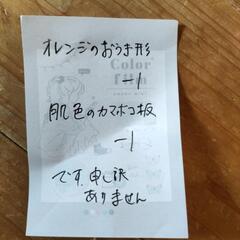 オレンジのおうぎ形
-1
肌色のカマボコ板
-1
です。申し訳
ありません
Color
film